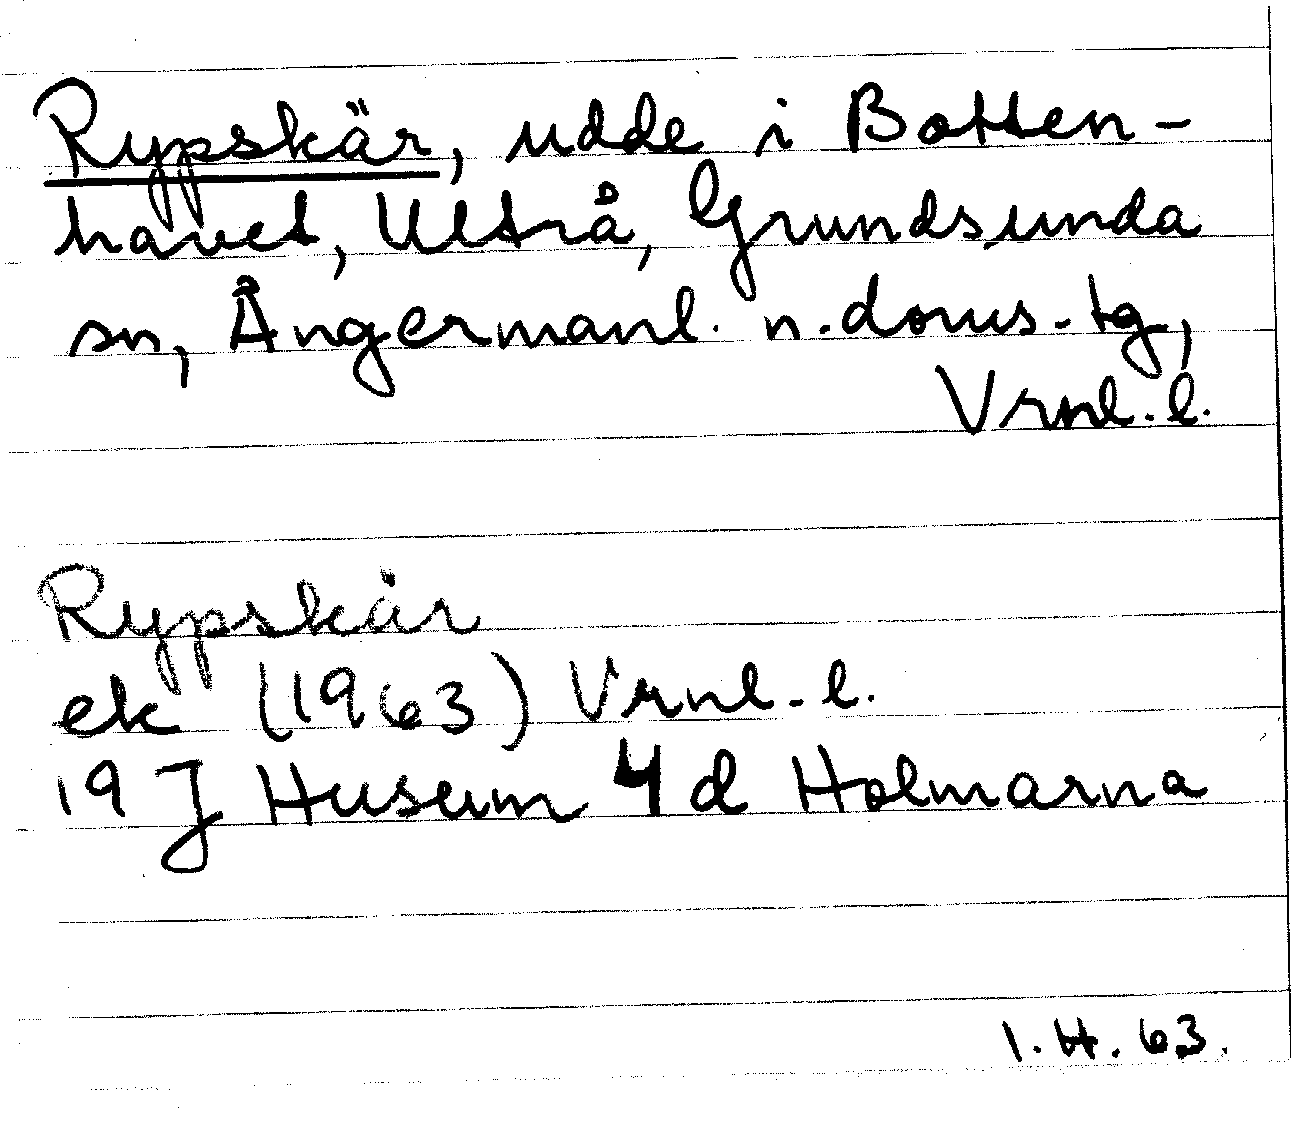 Rypskär, udde i Botten-
havet, Ultrå, Grundsunda
sn, Ångermanl. n. doms-tg,
Vrnl. l.
Rypskär
ek (1963) Vrnl. l.
19 J Husum 4 d Holmarna
I.H. 63.